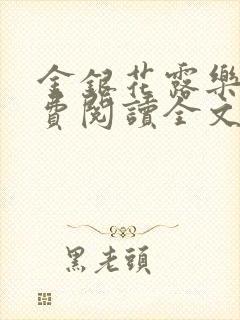 金銀花露樂
費閱讀全文
黑老頭